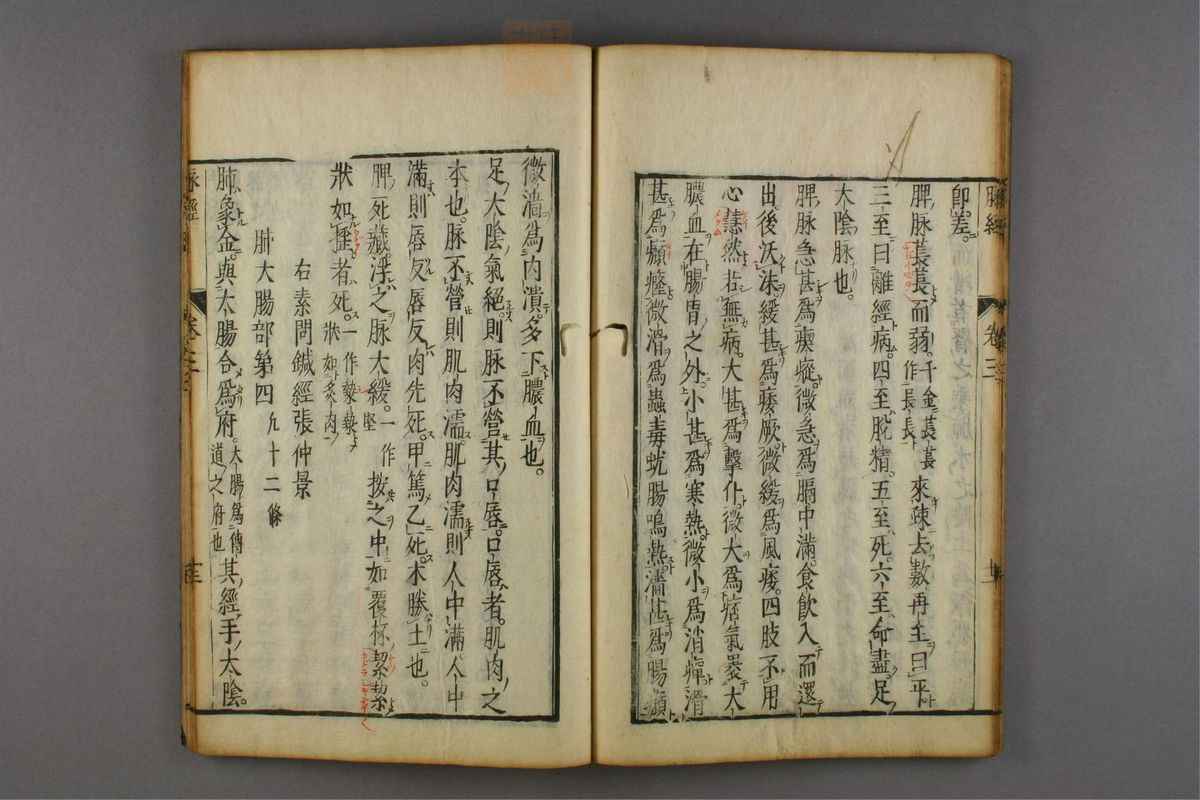 脉經 卷三
卽差。
脾脉萇萇而弱。千金萇萇作長長來疎去數再至曰平。
三至曰離經病。四至脫精。五至死。六至命盡。足
太陰脉也。
脾脉急甚爲瘈瘲。微急爲膈中滿。食飲入而還
出。後沃沫。緩甚爲痿厥。微緩爲風痿。四肢不用
心慧然若無病。大甚爲擊仆。微大爲痞氣裹大
膿血在腸胃之外。小甚爲寒熱。微小爲消癉滑
甚爲㿗癃微滑爲蟲毒蚘腸鳴熱濇甚爲腸㿗
微濇爲內潰。多下膿血也。
足太陰氣絕。則脉不營其口唇。口唇者。肌肉之
本也。脉不營則肌肉濡肌肉濡則人中滿。人中
滿則唇反唇反肉先死。甲篤乙死。木勝土也。
脾死藏。浮之脉大緩。一作堅按之中如覆杯絜絜
狀如揺者死。一作漐漐狀如炙肉
右素問鍼經張仲景
肺大腸部第四 九十二條
肺象金。與大腸合爲府。大腸爲傳道之府也其經手太陰。
脉經 卷之三